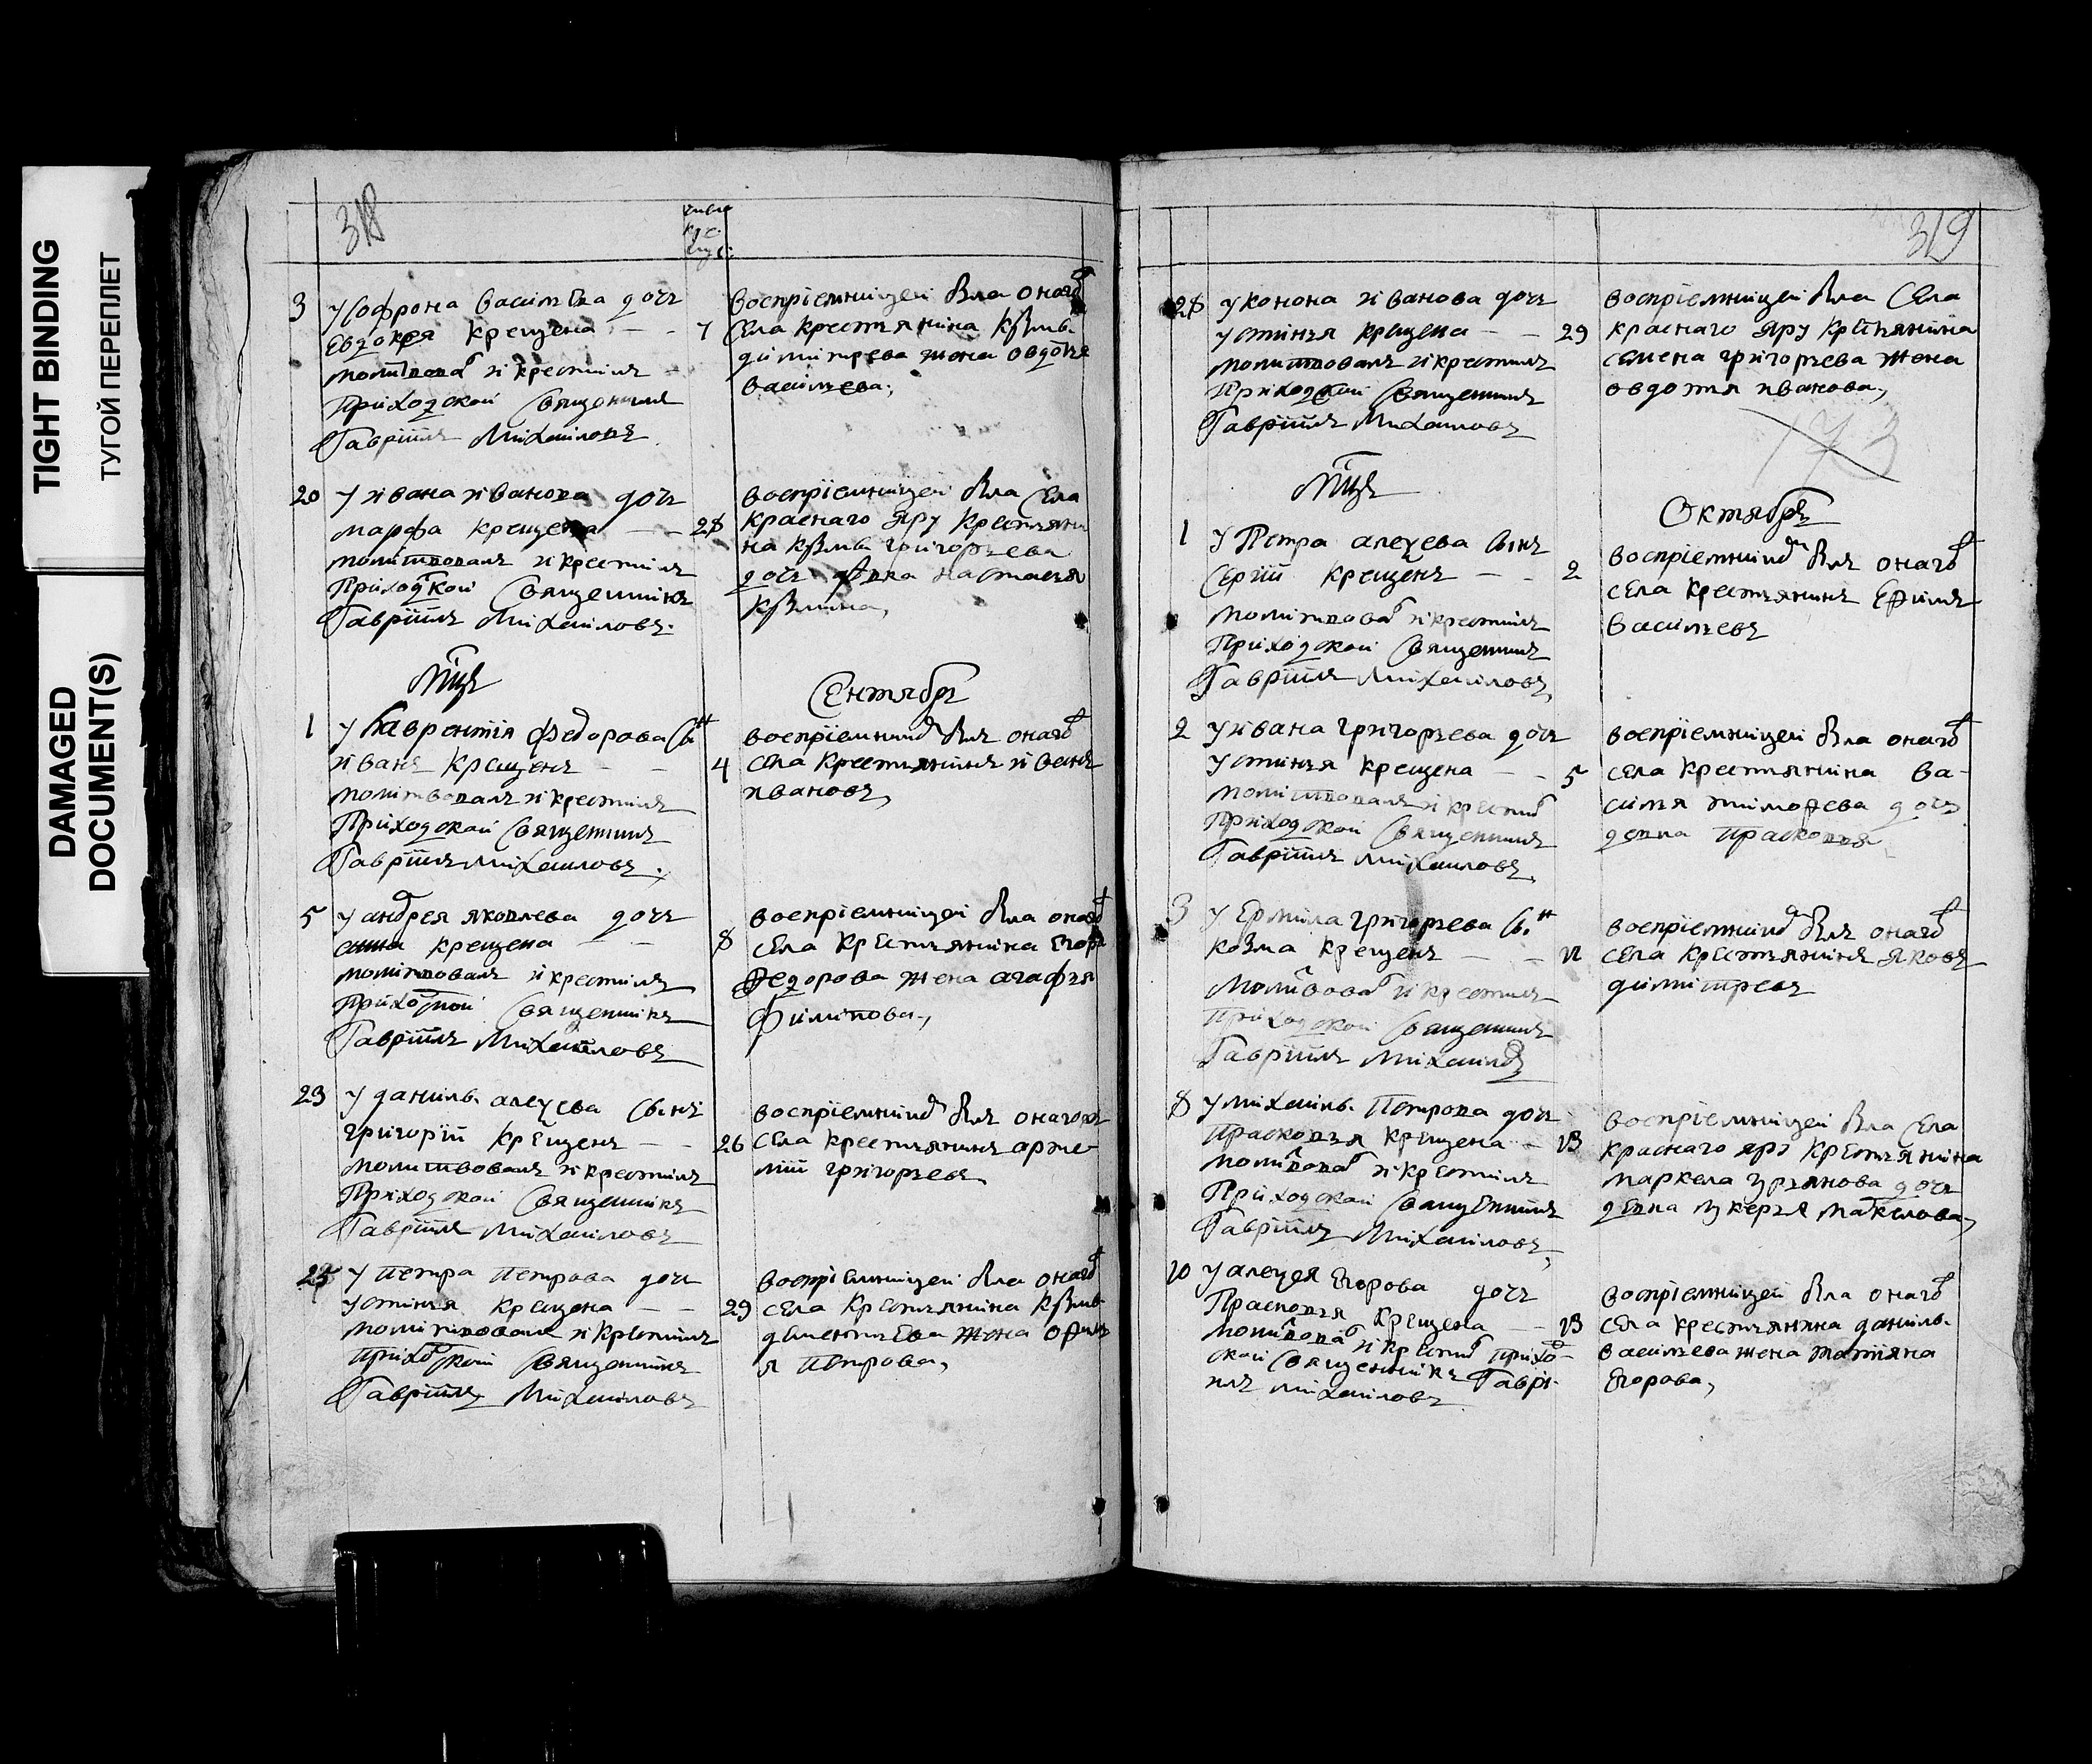 TIGHT BINDING
ТУГОЙ ПЕРЕПЛЕТ
DAMAGED
DOCUMENT(S)
318
3
у Софрона васильева дочь
Евдокея крещена
молитвова и крестилъ
Приходской Священникъ
Гаврiилъ Михаиловъ
7
воспрiемницей была онаго
села крестьянина кузмы
димитрева жена овдотья
васильева,
20
у ивана иванова дочь
марфа крещена
молитвовалъ и крестилъ
Приходкой Священникъ
Гаврiилъ Михаиловъ
28
воспрiемницей была села
краснаго яру крестьяни
на кузмы григорьева
дочь девка настасья
кузмина,
Мцъ
Сентябрь
1
у Лаврентiя федорова сын
иванъ крещенъ
молитвовалъ и крестилъ
Приходской Священникъ
Гаврiилъ михаиловъ
4
воспрiемникъ былъ онаго
села крестьянинъ иванъ
ивановъ,
5
у андрея яковлева дочь
анна крещена
молитвовалъ и крестилъ
Приходской Священникъ
Гаврiилъ Михаиловъ
8
воспрiемницей была онаго
села крестьянина Егора
Федорова жена агафья
филипова,
23
у данилы алеѯева сынъ
григорiй крещенъ
молитвовалъ и крестилъ
Приходской Священникъ
Гаврiилъ Михаиловъ
26
воспрiемникъ былъ онагожъ
села крестьянинъ арте-
мiй григорьевъ
25
у петра Петрова дочь
устинья крещена
молитвовалъ и крестилъ
Приходской Священникъ
Гаврiилъ Михаиловъ
29
воспрiемницей была онаго
села крестьянина кузмы
дементьева жена офимь
я Петрова,
319
28
у конона иванова дочь
устинья крещена
молитвовалъ и крестилъ
Приходской Священникъ
Гаврiилъ Михаиловъ
29
воспрiемницей была села
краснаго яру крестьянина
семена григорьева жена
овдотья иванова,
173
Мцъ
Октябрь
1
у Петра алеѯева сынъ
Сергiй крещенъ
молитвова и крестилъ
Приходской Священникъ
Гаврiилъ Михаиловъ
2
воспрiемникъ былъ онаго
села крестьянинъ Ефимъ
васильевъ
2
у ивана григорьева дочь
устинья крещена
молитвовалъ и крестил
Приходской Священникъ
Гаврiилъ михаиловъ
5
воспрiемницей была онаго
села крестьянина ва-
силья тимофева дочь
девка прасковья
3
у Ермила григорьева сын
козма крещенъ
Молитвова и крестилъ
Приходской Священникъ
Гаврiилъ Михаилов
11
воспрiемникъ былъ онаго
села крестьянинъ яковъ
димитревъ
8
у михаилы Петрова дочь
прасковья крещена
молитвова и крестилъ
Приходской Священникъ
Гаврiилъ Михаиловъ
13
воспрiемницей была села
краснаго яру крестьянина
маркела дочь
девка лукерья макелова,
10
у алеѯея Егорова дочь
Прасковья крещена
молитвова и крестил прихо-
ской Священникъ Гаврi-
илъ михаиловъ
13
воспрiемницей была онаго
села крестьянина данилы
васильева жена татiяна
Егорова,